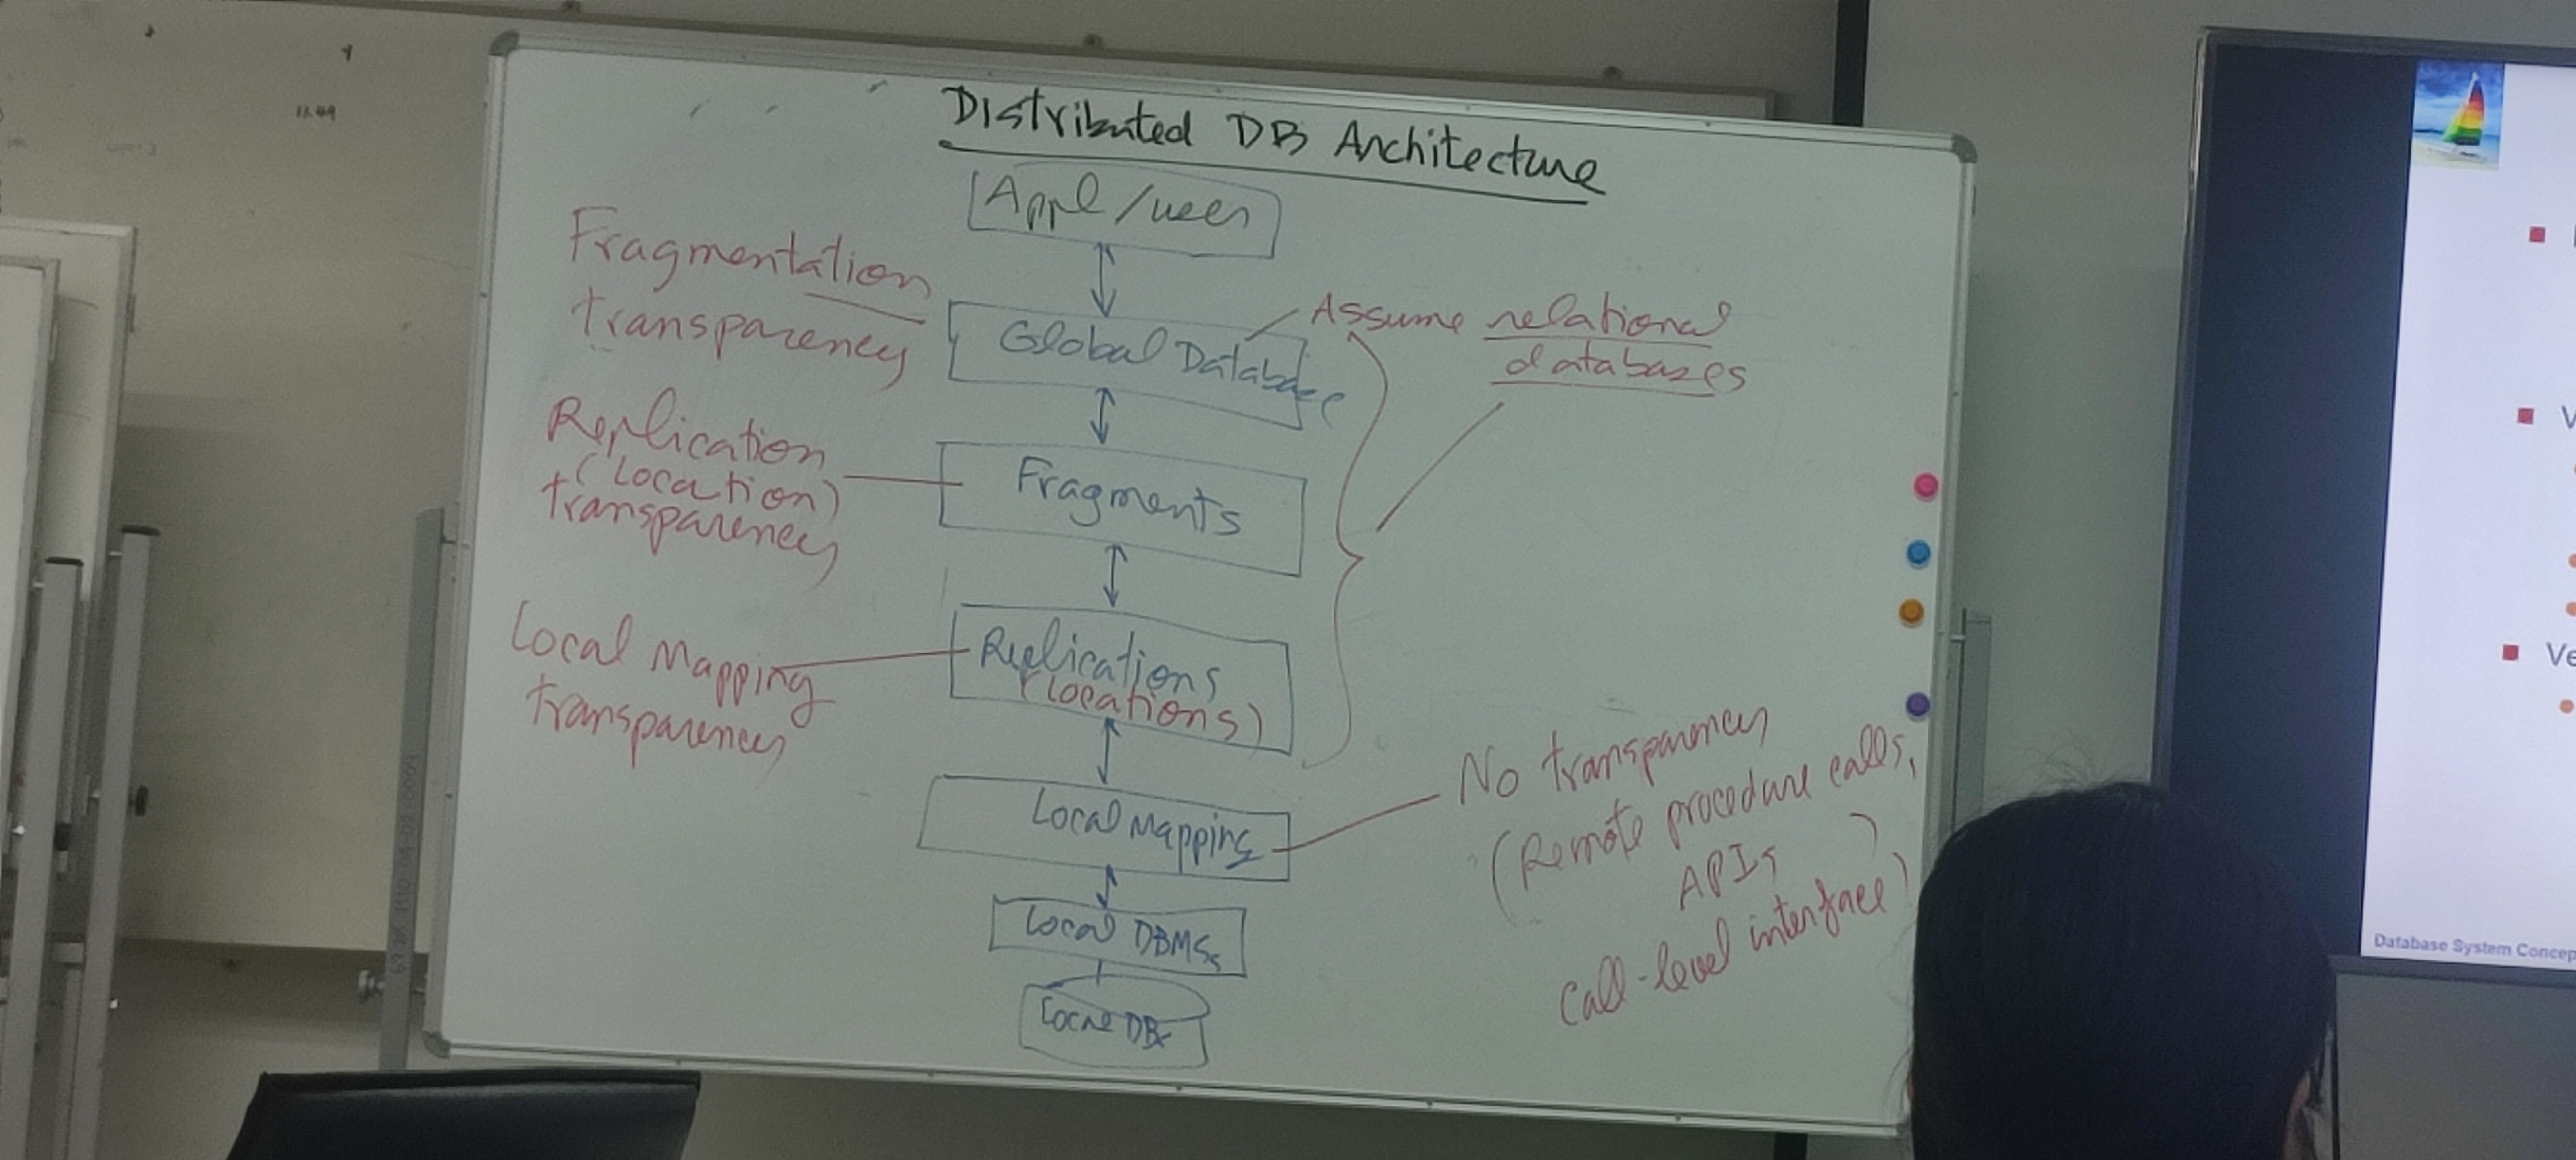 Distributed DB Architecture
Appl/user
Fragmentation
transparency
Global Database
Assume relational
databases
Replication
(Location)
transparency
Fragments
Local Mapping
transparency
Replications
(Locations)
Local Mapping
No transparency
(Remote procedure calls,
APIs )
call-level interface)
Local DBMSs
Local DBs
11.49
Ve
Database System Concep